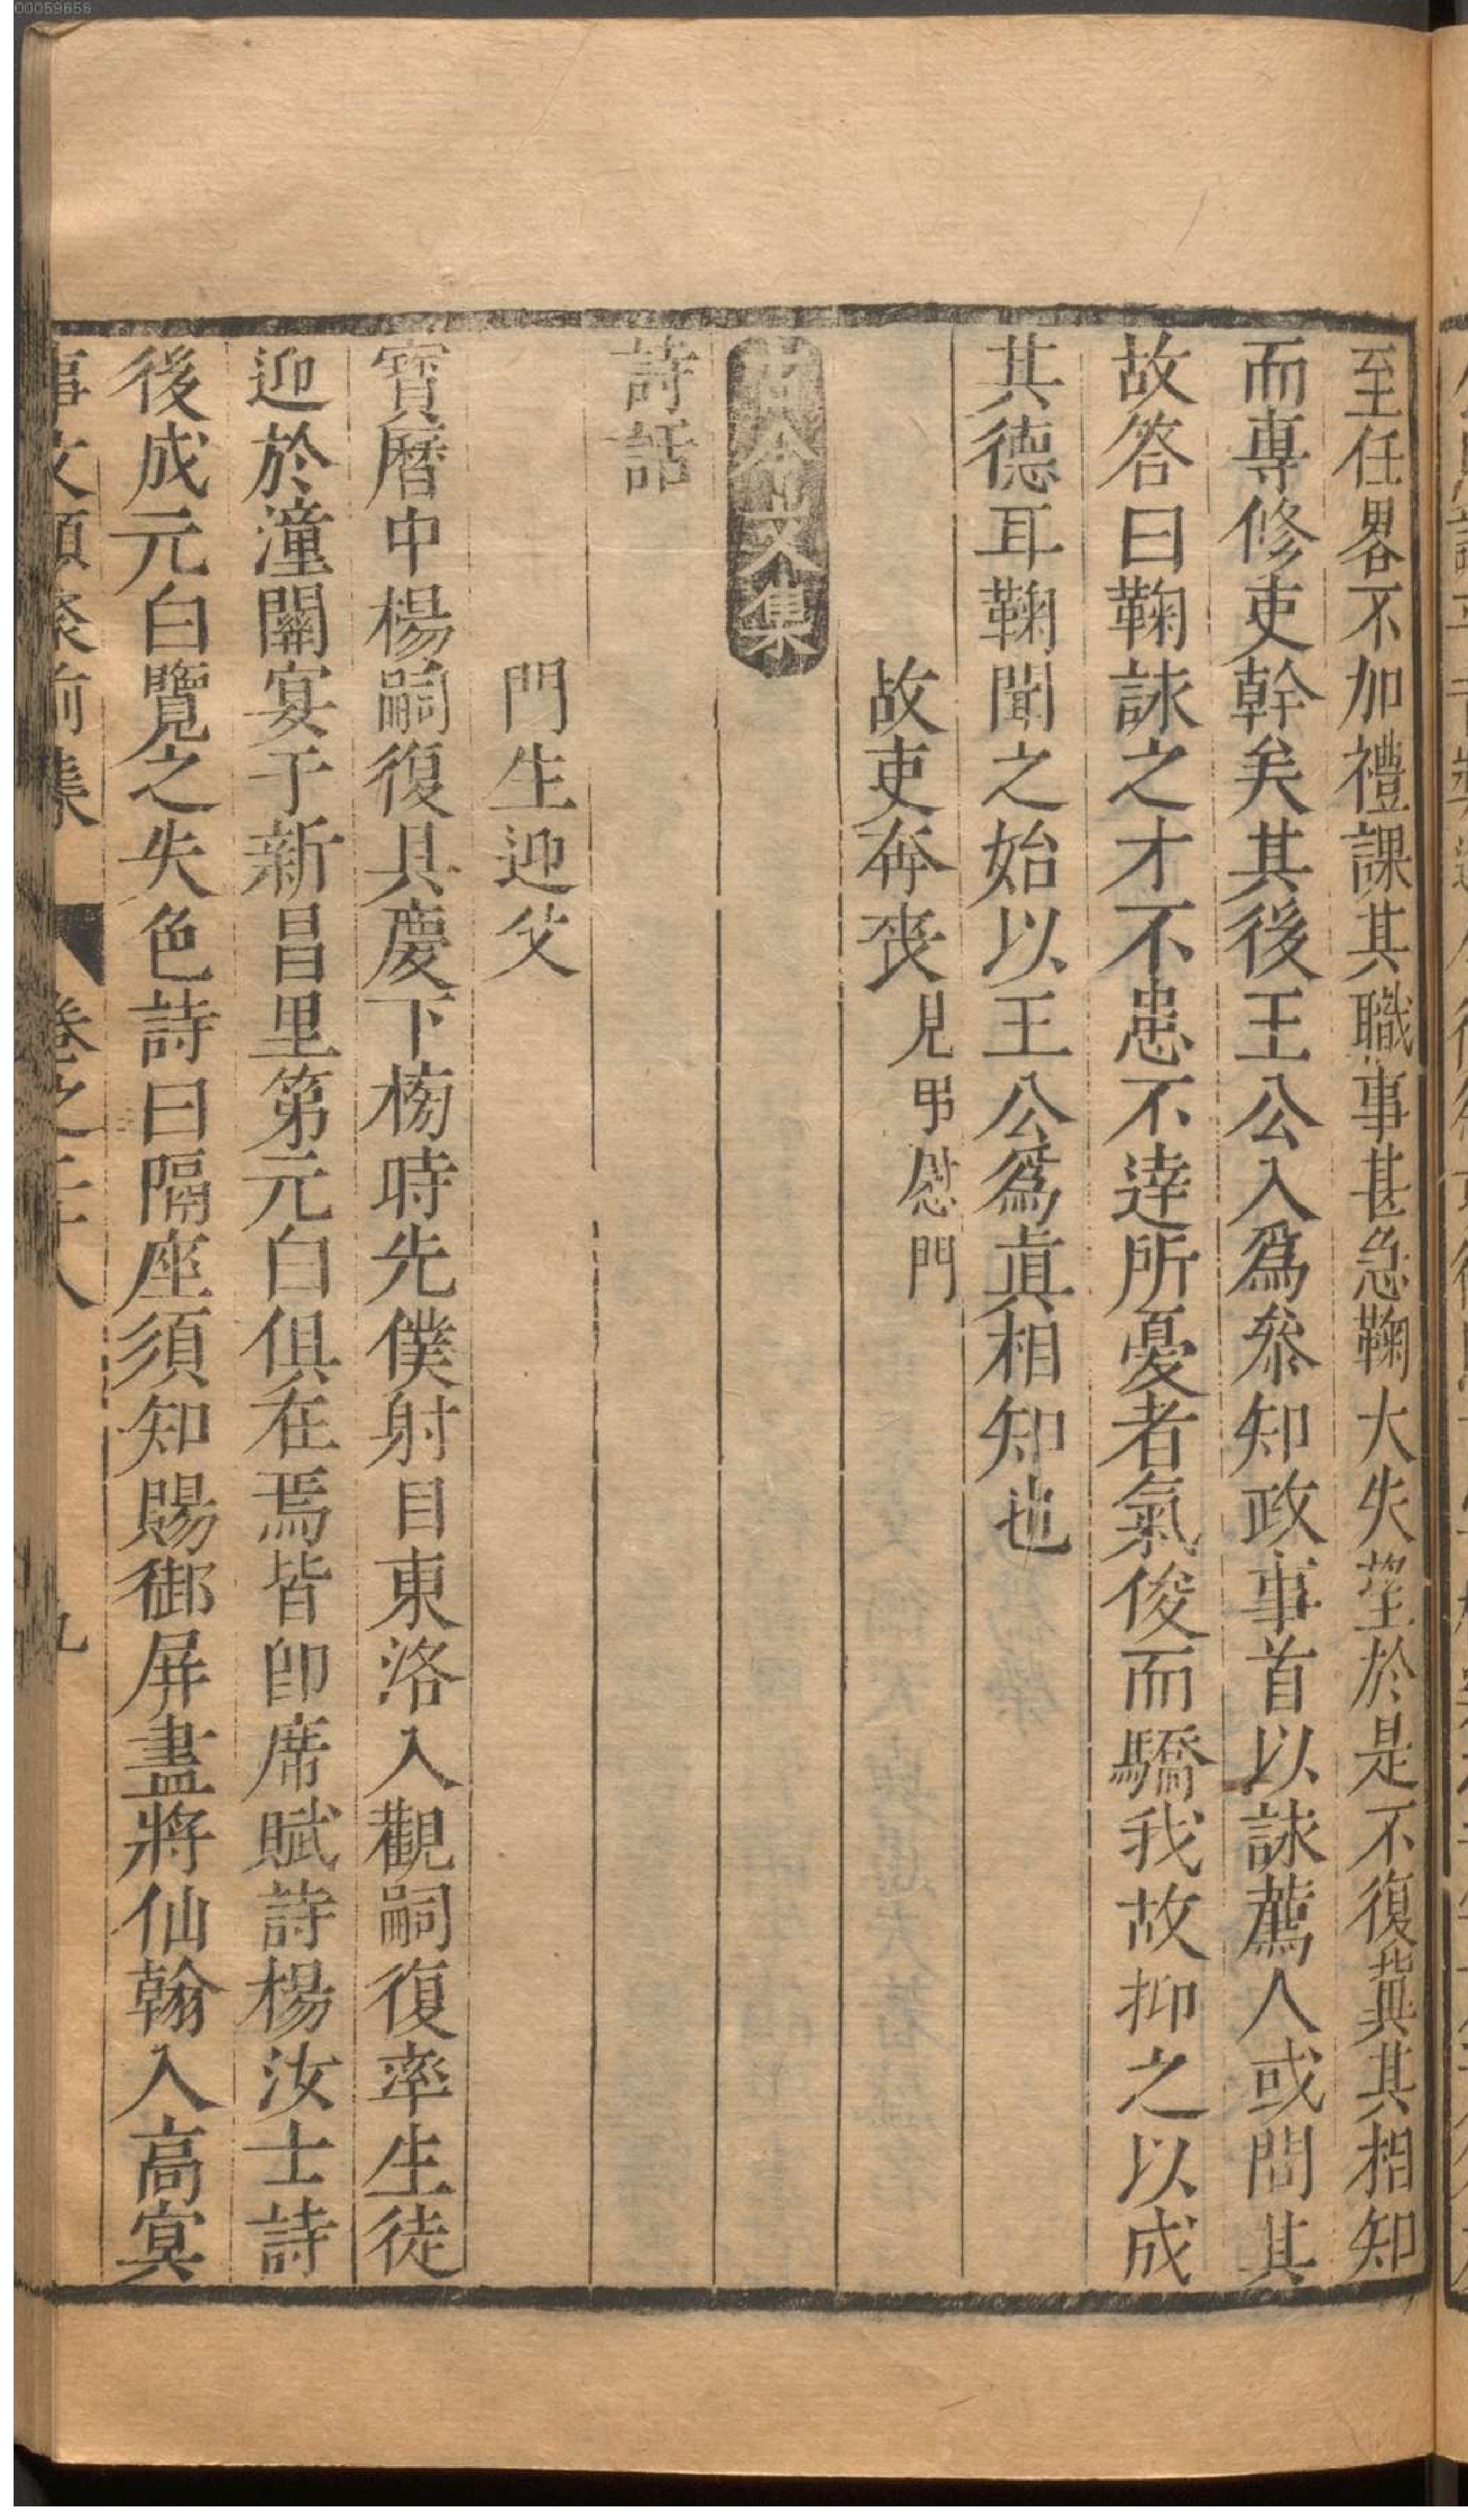 00059656
至任畧不加禮課其職事甚急鞠大失望於是不復冀其相知
而專修吏幹矣其後王公入爲參知政事首以誄薦人或問其
故答曰鞠誄之才不患不達所憂者氣俊而驕我故抑之以成
其德耳鞠聞之始以王公爲眞相知也
故吏奔喪見弔慰門
古今文集
詩話
門生迎父
寳曆中楊嗣復具慶下榜時先僕射自東洛入觀嗣復率生徒
迎於潼關宴于新昌里第元白俱在焉皆卽席賦詩楊汝士詩
後成元白覽之失色詩曰隔座須知賜御屏盡將仙翰入高冥
事文類聚前集 卷之二十八 九